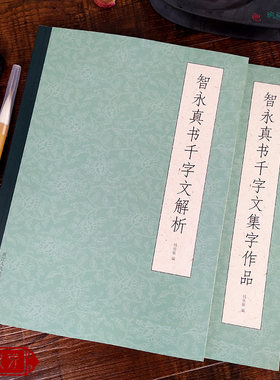 智永真书千字文解析
智永真书千字文集字作品
编